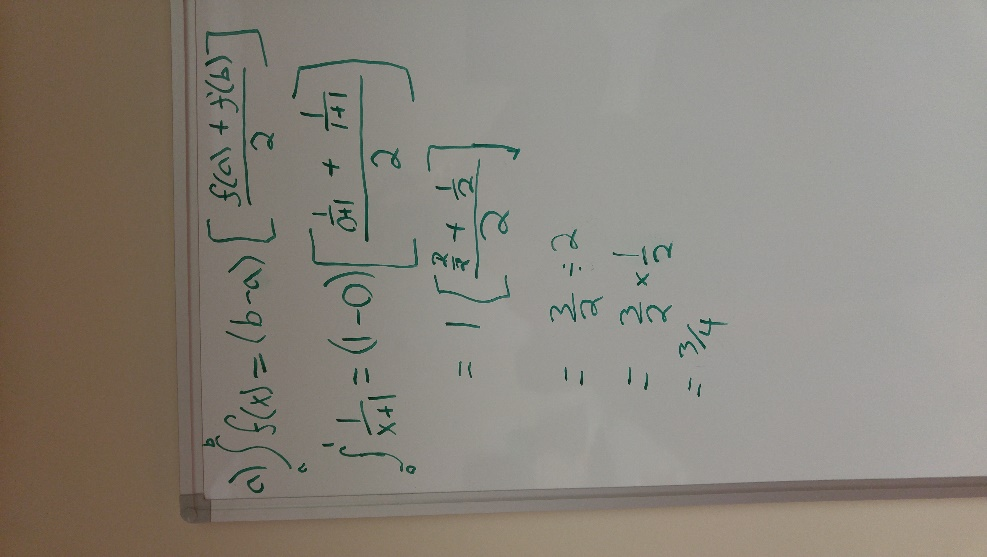 a) ∫_a^b f(x) = (b-a) [ (f(a) + f(b)) / 2 ]
∫_0^1 1/(x+1) = (1-0) [ (1/(0+1) + 1/(1+1)) / 2 ]
= 1 [ (2/2 + 1/2) / 2 ]
= 3/2 ÷ 2
= 3/2 × 1/2
= 3/4